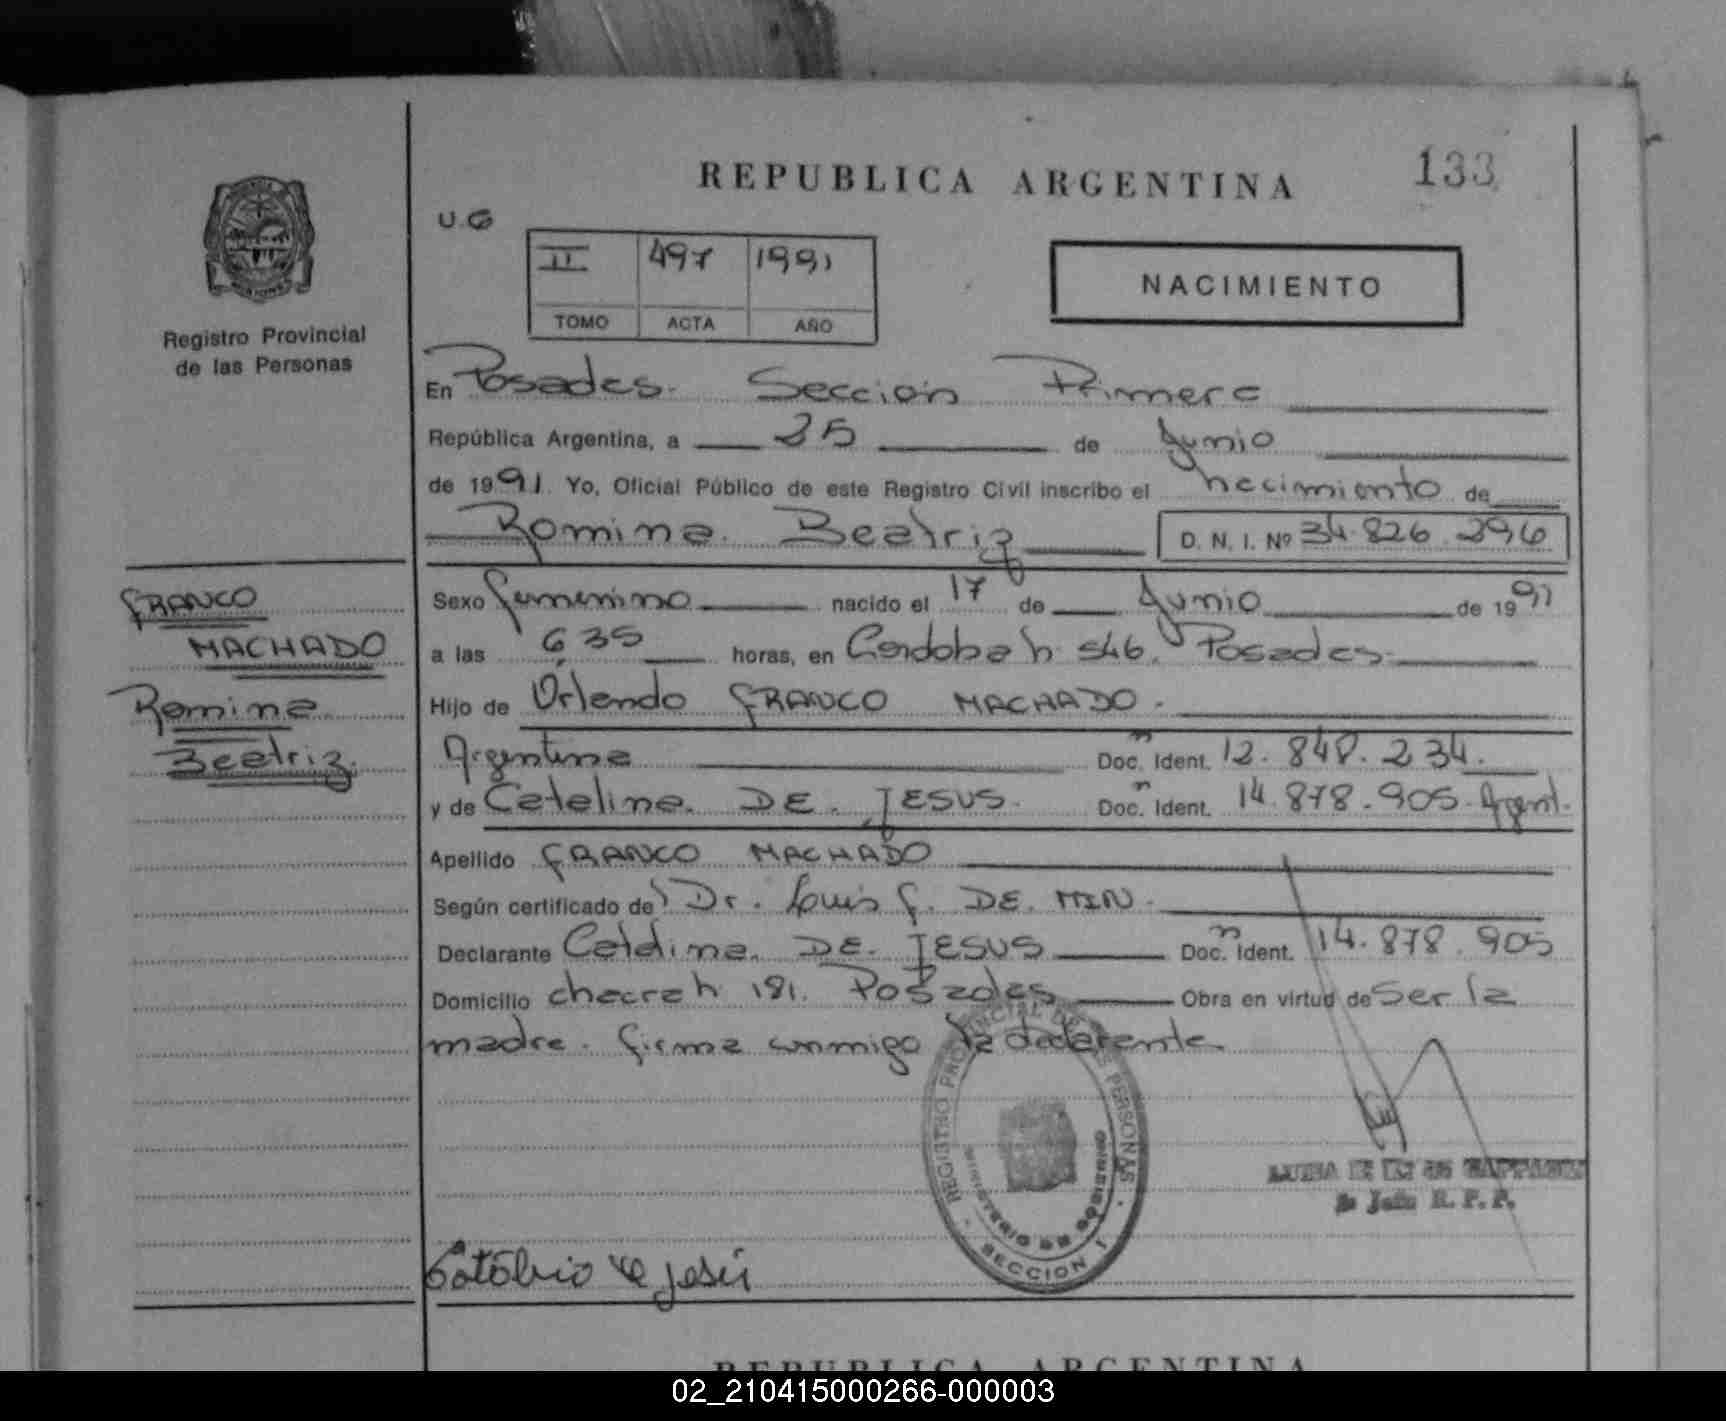 REPUBLICA ARGENTINA
133
U.G
II 497 1991
TOMO ACTA AÑO
NACIMIENTO
Registro Provincial
de las Personas
En Posadas. Sección Primera
República Argentina, a 25 de Junio
de 1991. Yo, Oficial Público de este Registro Civil inscribo el nacimiento de
Romina Beatriz D. N. I. Nº 34.826.296
FRANCO
MACHADO
Romina
Beatriz
Sexo femenino nacido el 17 de Junio de 1991
a las 6,35 horas, en Cordoba n 546. Posadas
Hijo de Orlando FRANCO MACHADO.
Argentina Doc. n Ident. 12.848.234.
y de Catalina DE JESUS. Doc. n Ident. 14.878.905. Argent.
Apellido FRANCO MACHADO
Según certificado del Dr. Luis F. DE MIN.
Declarante Catalina DE JESUS Doc. n Ident. 14.878.905
Domicilio chacra n 181. Posadas Obra en virtud de Ser la
madre. firma conmigo la declarante.
REGISTRO PROVINCIAL DE LAS PERSONAS
MINISTERIO DE GOBIERNO
SECCION 1
LUISA
Jefe R. P. P.
de Jesús
REPUBLICA ARGENTINA
02_210415000266-000003